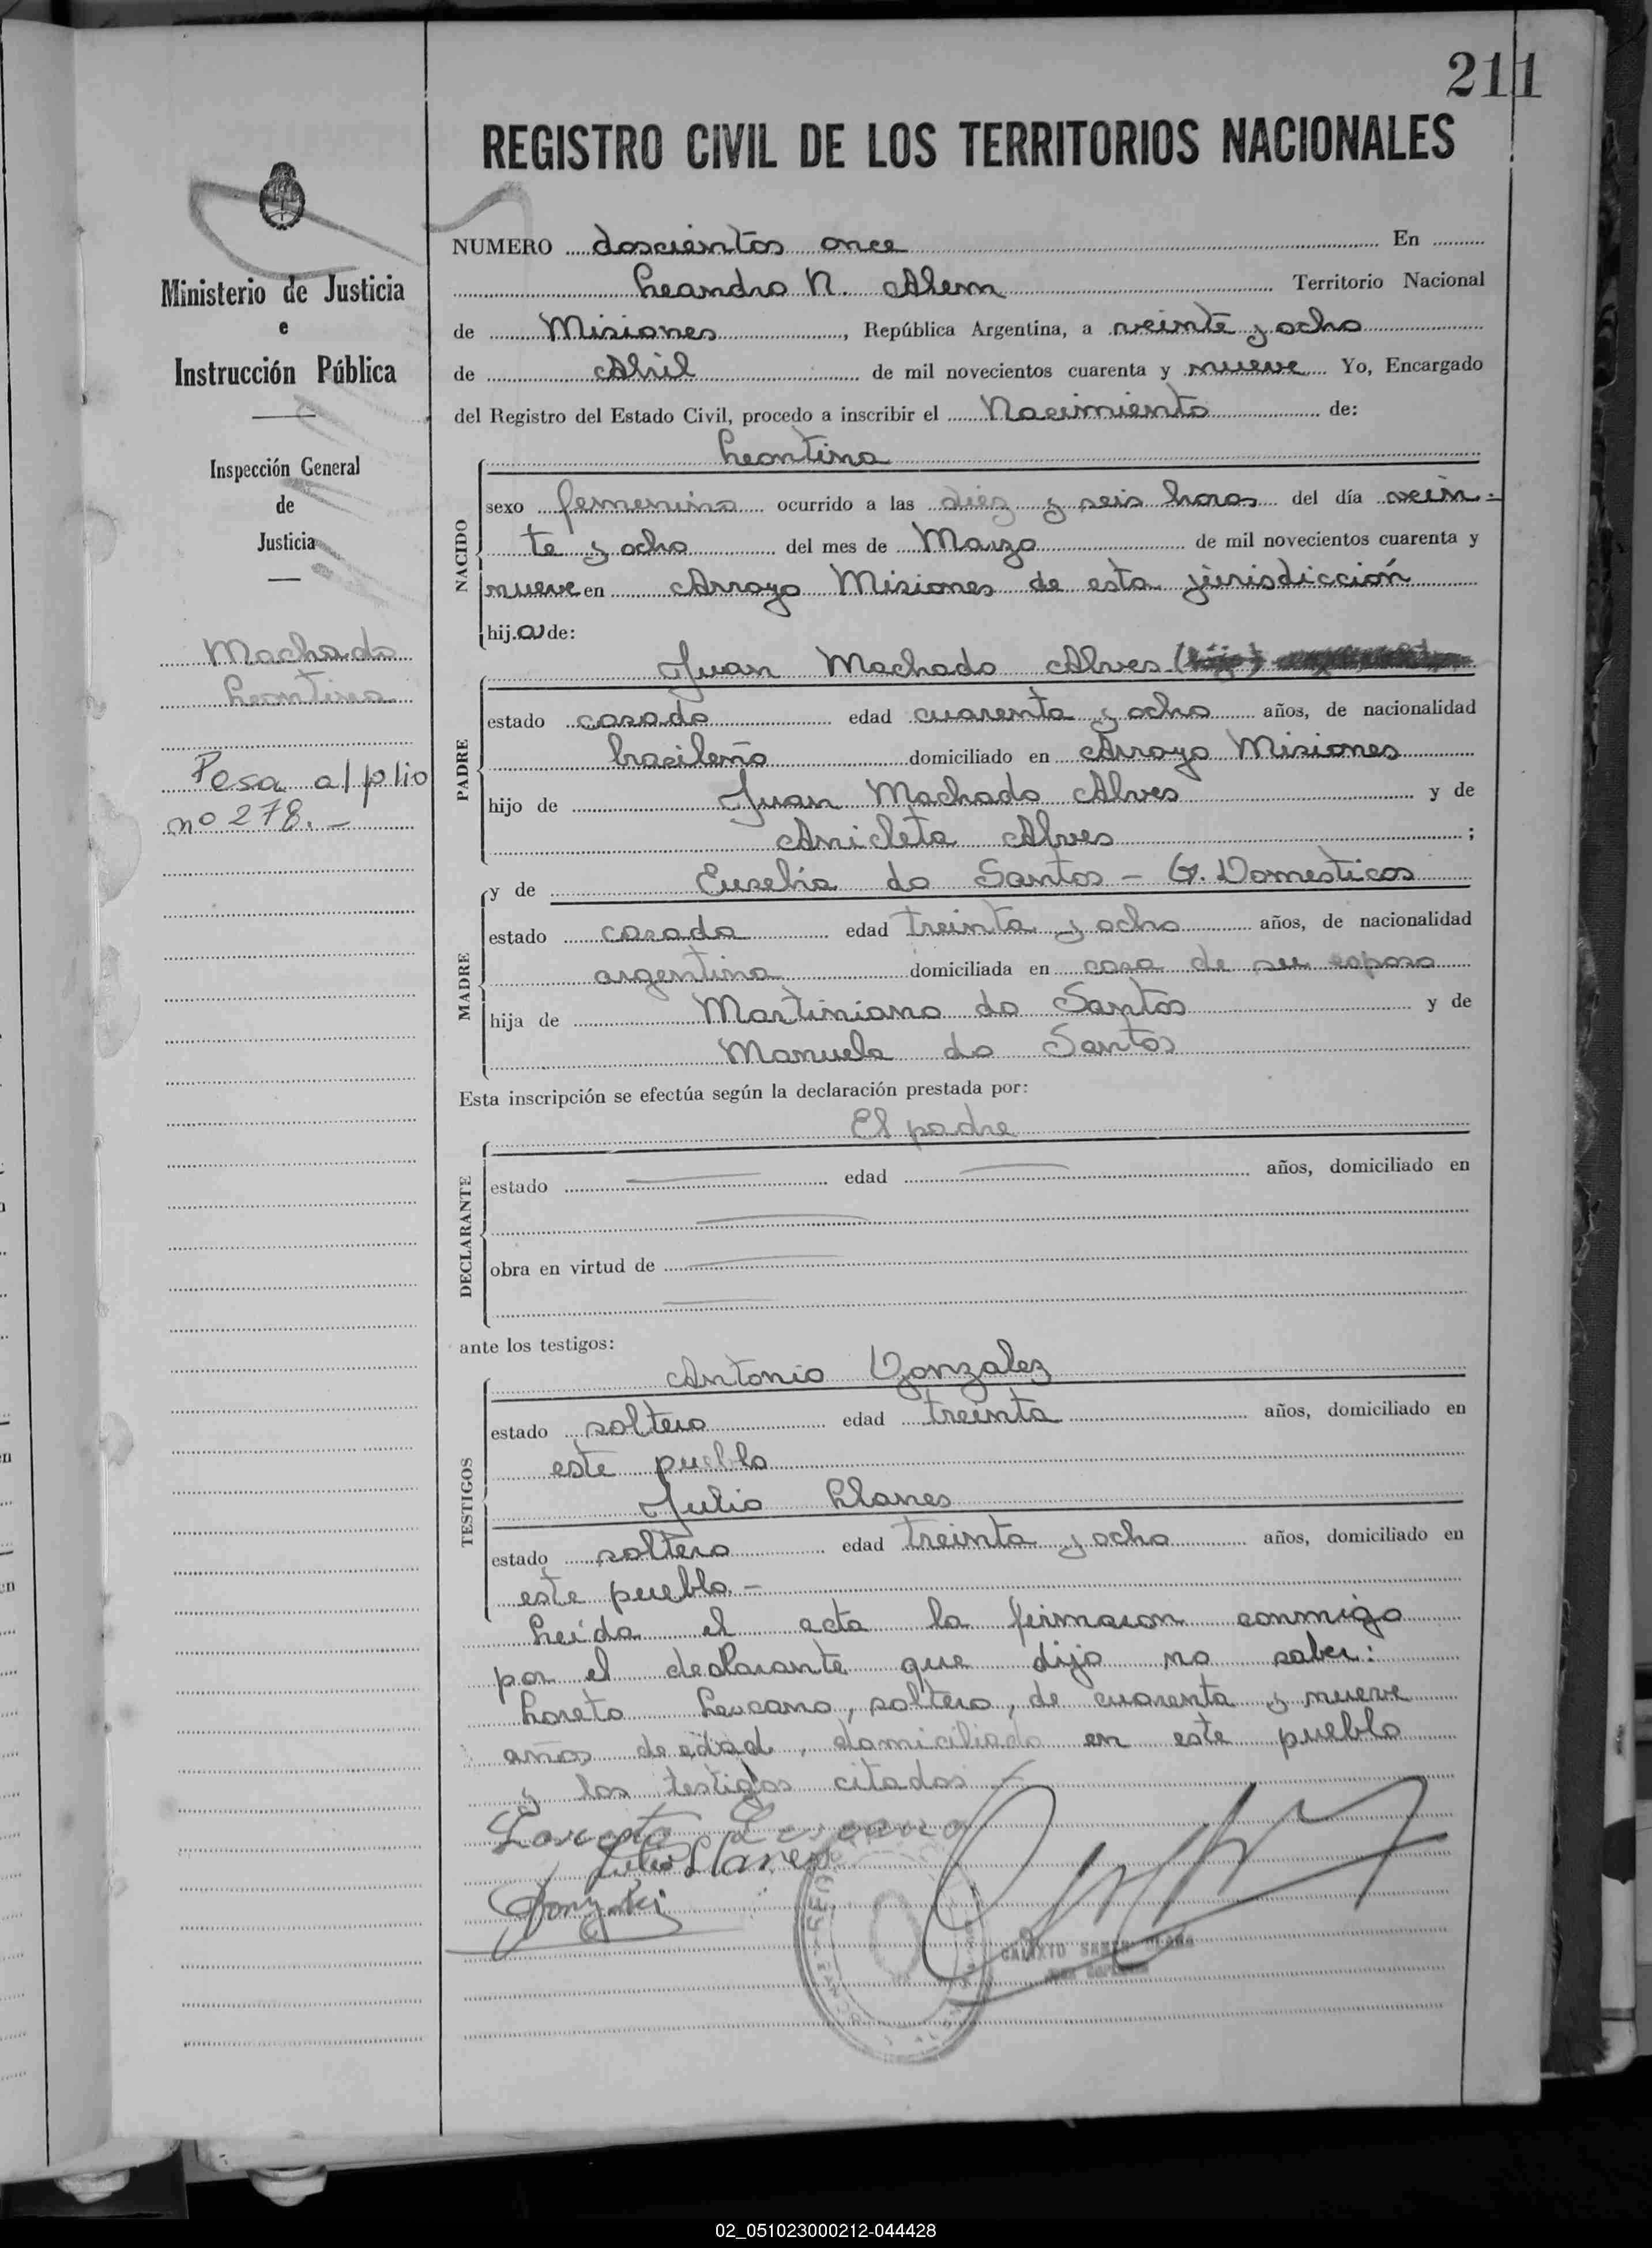 211
REGISTRO CIVIL DE LOS TERRITORIOS NACIONALES
Ministerio de Justicia
e
Instrucción Pública
Inspección General
de
Justicia
Machado
Leontina
Pasa al folio
nº 278.-
NUMERO doscientos once En
Leandro N. Alem Territorio Nacional
de Misiones, República Argentina, a veinte y ocho
de Abril de mil novecientos cuarenta y nueve Yo, Encargado
del Registro del Estado Civil, procedo a inscribir el Nacimiento de:
NACIDO
Leontina
sexo femenino ocurrido a las diez y seis horas del día vein-
te y ocho del mes de Marzo de mil novecientos cuarenta y
nueve en Arroyo Misiones de esta jurisdicción
hija de:
PADRE
Juan Machado Alves
estado casado edad cuarenta y ocho años, de nacionalidad
brasileño domiciliado en Arroyo Misiones
hijo de Juan Machado Alves y de
Anicleta Alves;
MADRE
y de Eusebia do Santos - Q. Domesticos
estado casada edad treinta y ocho años, de nacionalidad
argentina domiciliada en casa de su esposo
hija de Martiniano do Santos y de
Manuela do Santos
Esta inscripción se efectúa según la declaración prestada por:
DECLARANTE
El padre
estado edad años, domiciliado en
obra en virtud de
ante los testigos:
TESTIGOS
Antonio Gonzalez
estado soltero edad treinta años, domiciliado en
este pueblo
Julio Llanes
estado soltero edad treinta y ocho años, domiciliado en
este pueblo.-
Leída el acta la firmaron conmigo
por el declarante que dijo no saber:
Loreto Lescano, soltero, de cuarenta y nueve
años de edad, domiciliado en este pueblo
y los testigos citados.-
Loreto Lescano
Julio Llanes
CALIXTO
02_051023000212-044428